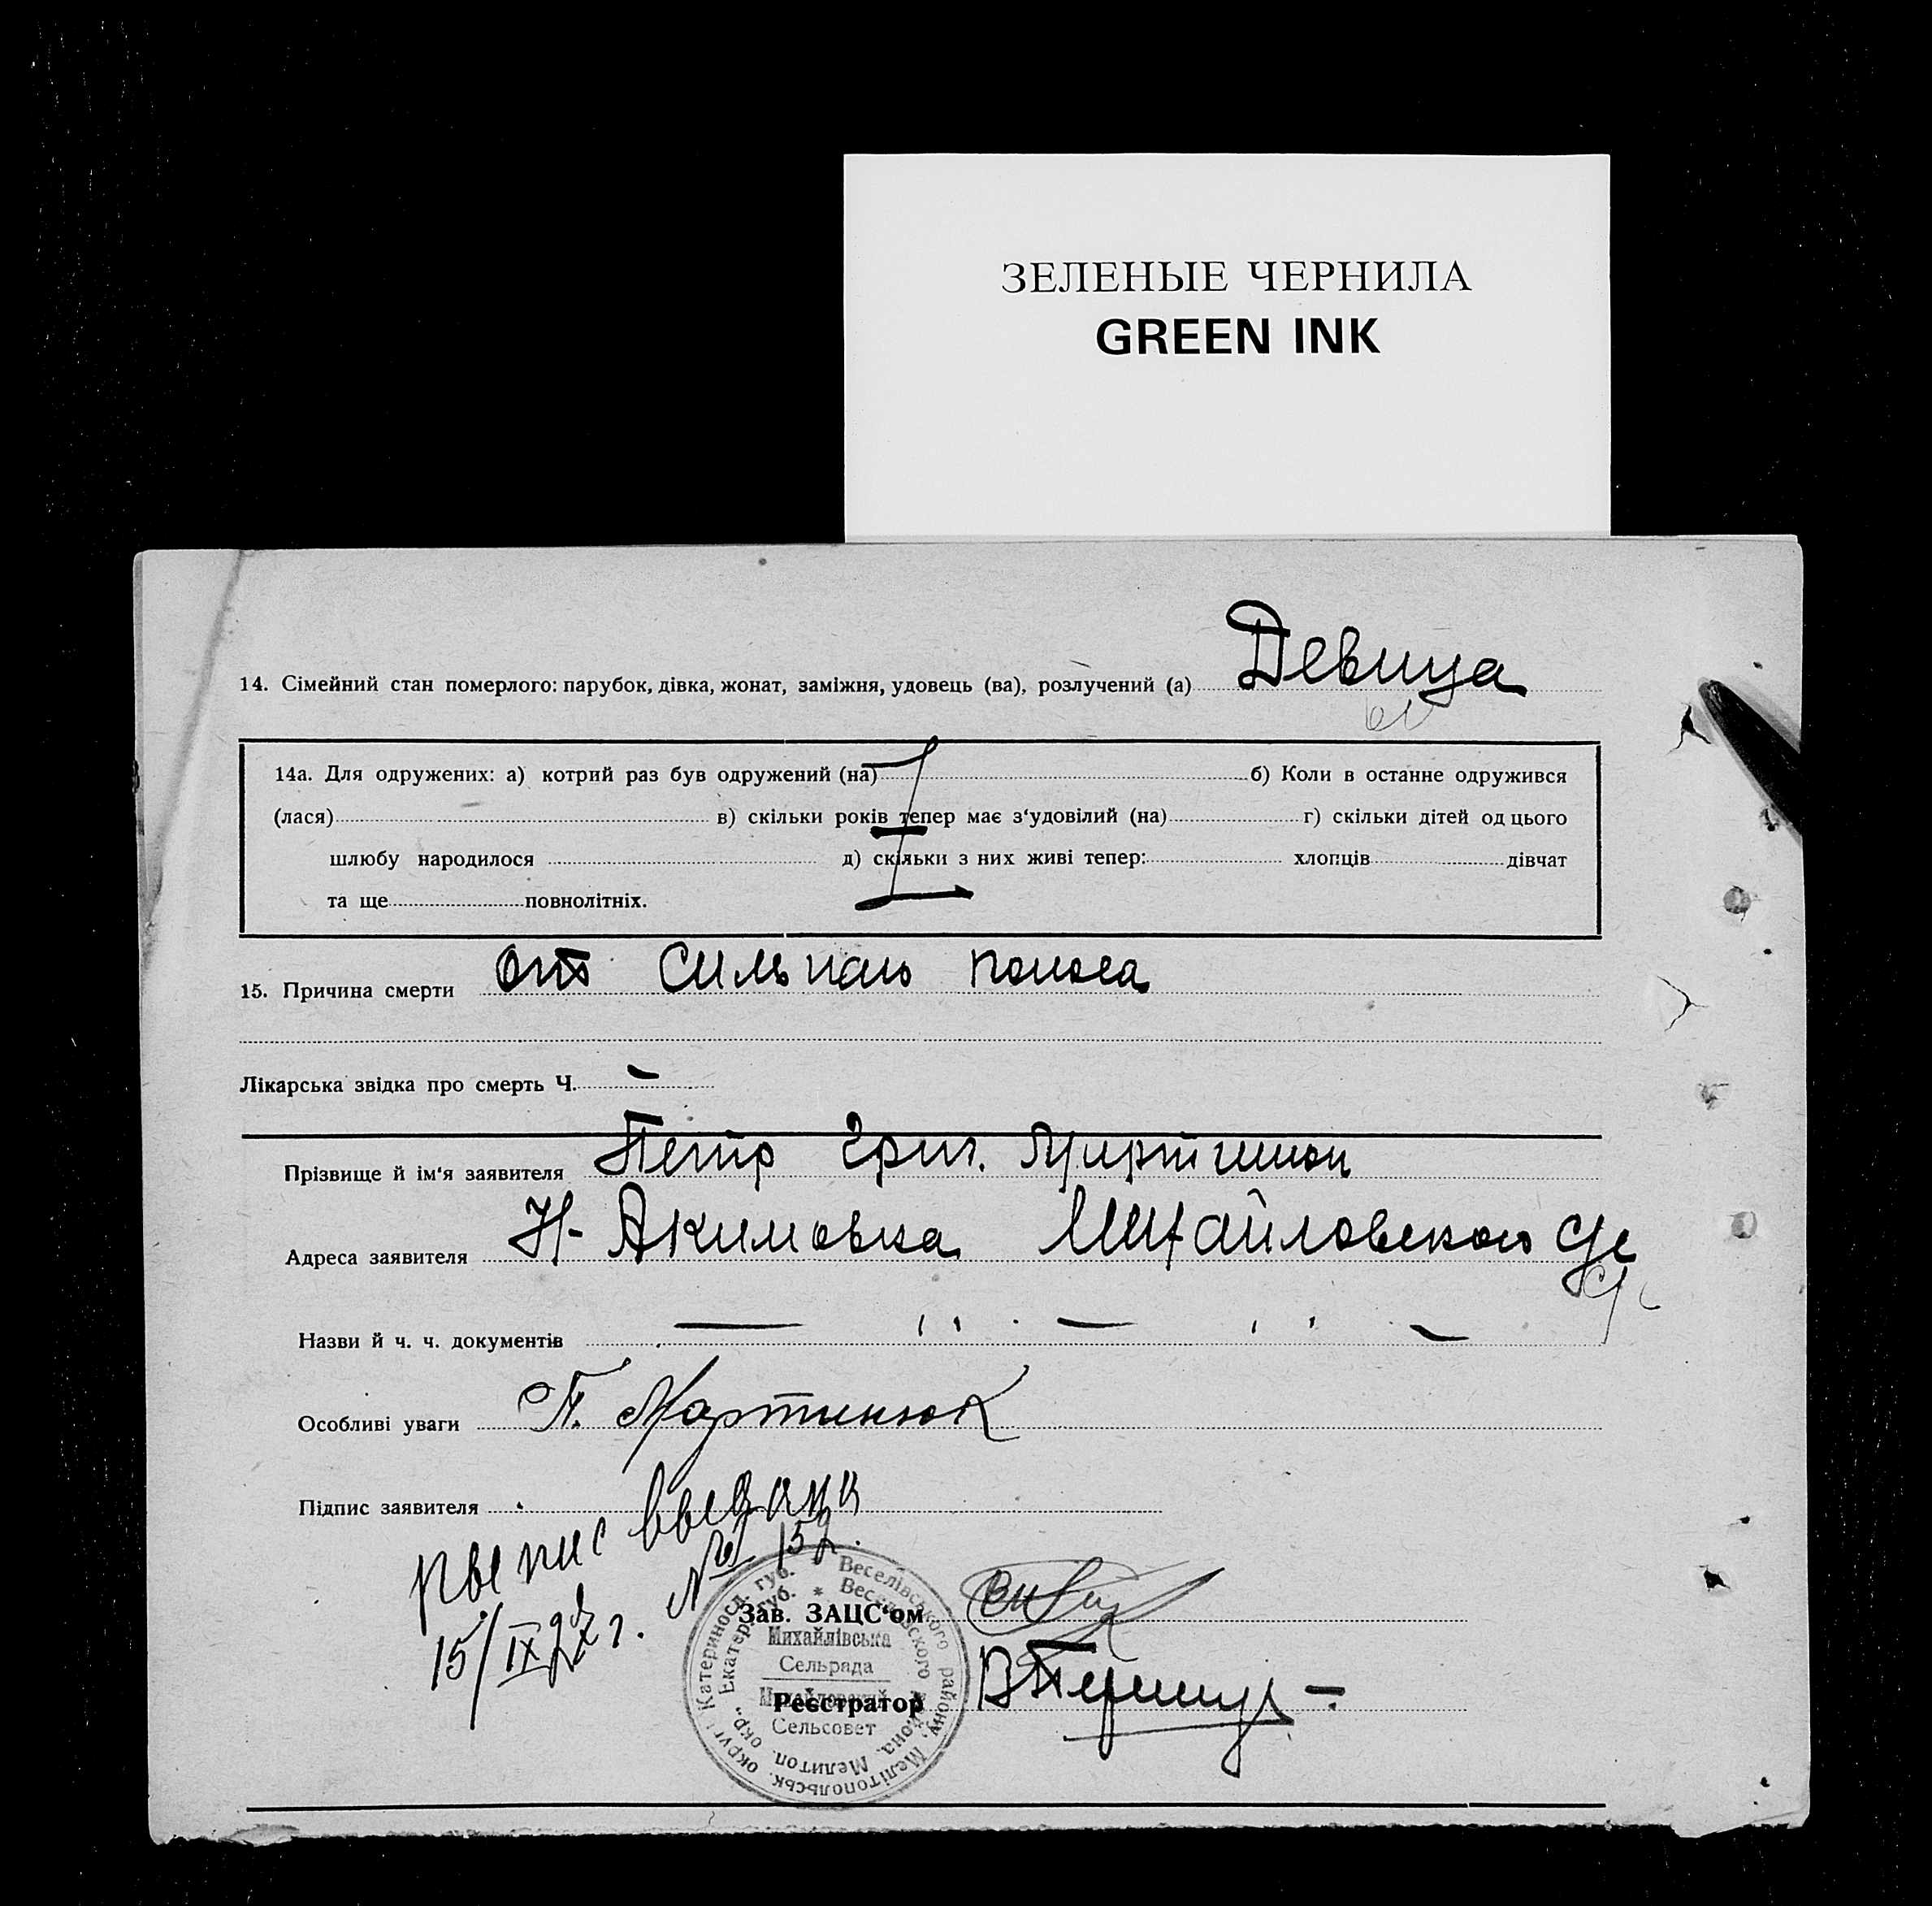 ЗЕЛЕНЫЕ ЧЕРНИЛА
GREEN INK
14. Сімейний стан померлого: парубок, дівка, жонат, заміжня, удовець (ва), розлучений (а) Девица
14а. Для одружених: а) котрий раз був одружений (на) б) Коли в останне одружився
(лася) в) скільки років тепер має з‘удовілий (на) г) скільки дітей од цього
шлюбу народилося д) скільки з них живі тепер: хлопців дівчат
та ще повнолітніх.
15. Причина смерти от сильнаго поноса
Лікарська звідка про смерть Ч. –
Прізвище й ім‘я заявителя Петр Григ.
Адреса заявителя Н-Акимовка Михайловского
Назви й ч. ч. документів — ,, — ,, —
Особливі уваги П. Мартинюк
Підпис заявителя
выдана
15/IX 27 г. № 152.
Зав. ЗАЦС‘ом
Реєстратор
Катериносл. губ. * Веселівського району, Мелітопольськ. округ.
Екатер. губ. * Веселовского района, Мелитоп. окр.
Михайлівська
Сельрада
Михайловский
Сельсовет